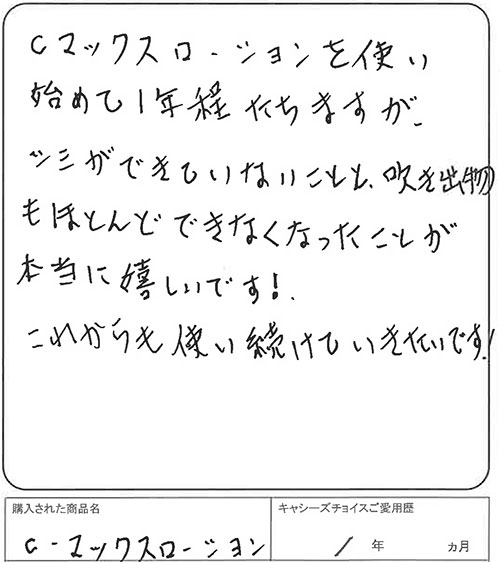 Cマックスローションを使い
始めて1年経たちますが、
シミができていないことと、吹き出物
もほとんどできなくなったことが
本当に嬉しいです!
これからも使い続けていきたいです!
購入された商品名
キャシーズチョイスご愛用歴
C-マックスローション
1年 ヵ月